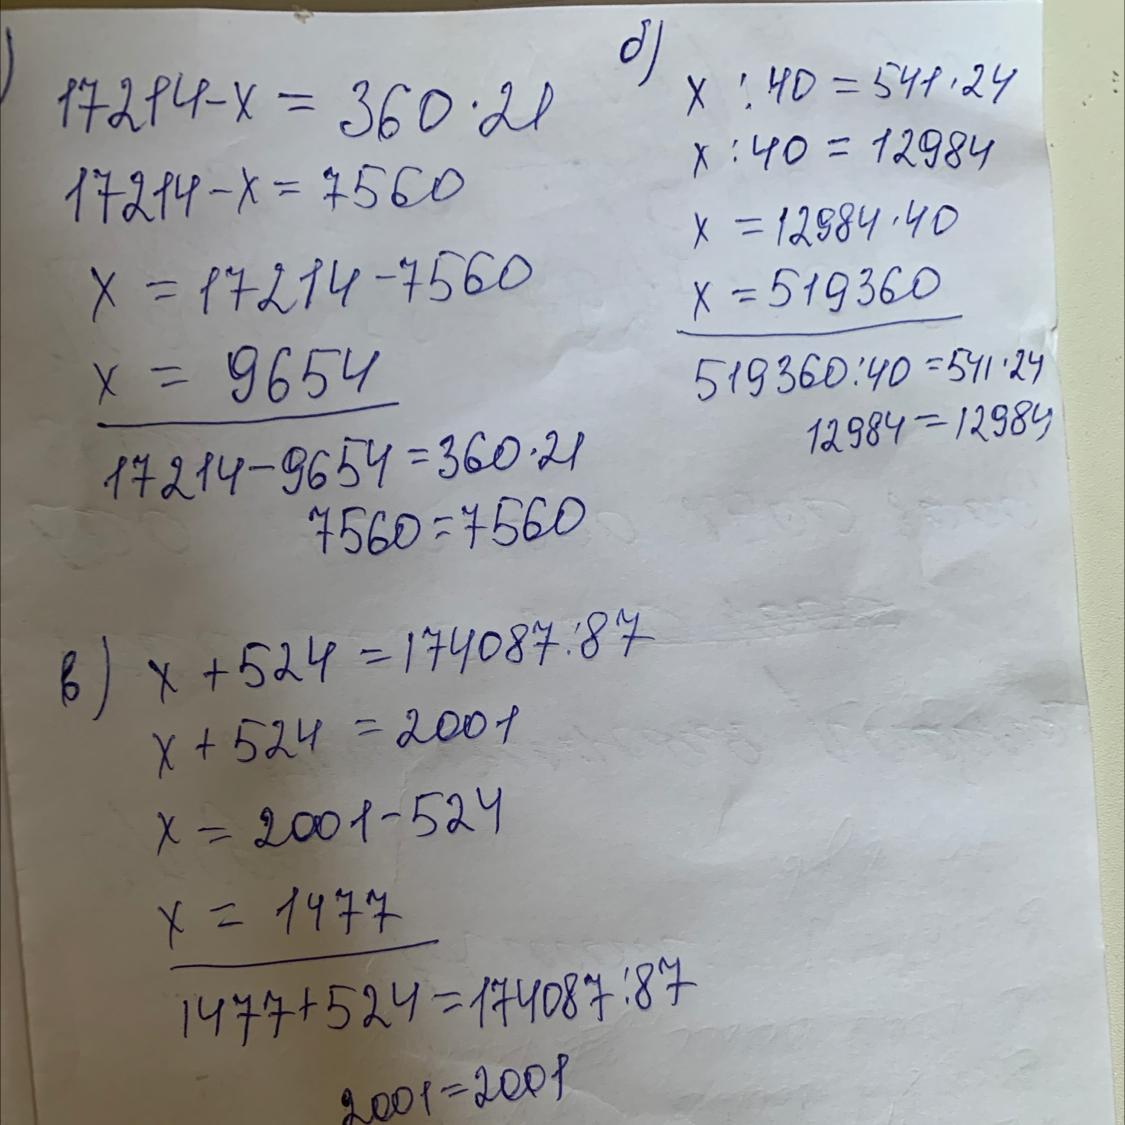 )
17214-x = 360·21
17214-x = 7560
x = 17214-7560
x = 9654
17214-9654=360·21
7560=7560
б)
x :40 = 541·24
x :40 = 12984
x = 12984·40
x = 519360
519360:40 =541·24
12984=12984
в) x +524 =174087:87
x +524 =2001
x = 2001-524
x = 1477
1477+524=174087:87
2001=2001